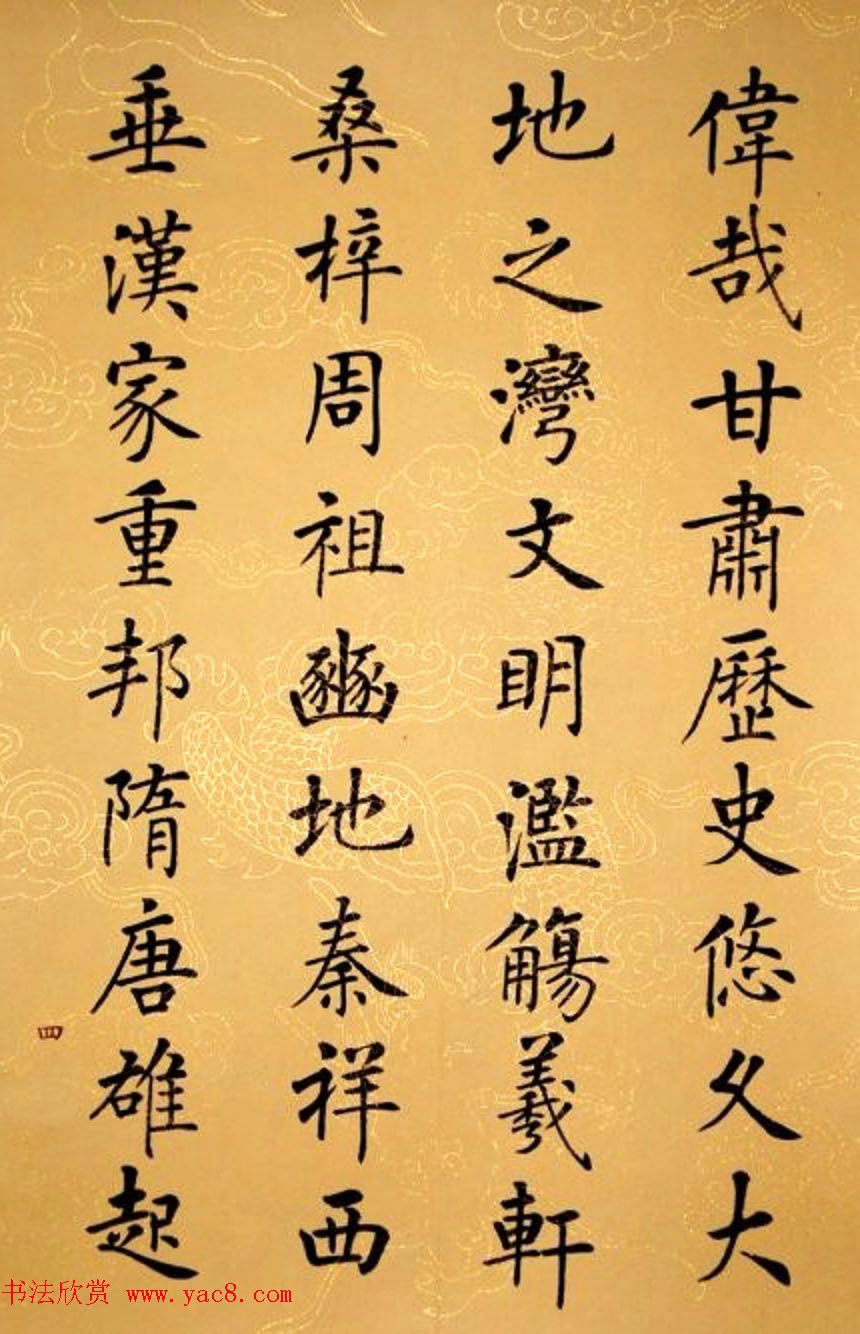 偉哉甘肅歷史悠久大
地之灣文明濫觴羲軒
桑梓周祖豳地秦祥西
垂漢家重邦隋唐雄起
四
书法欣赏 www.yac8.com